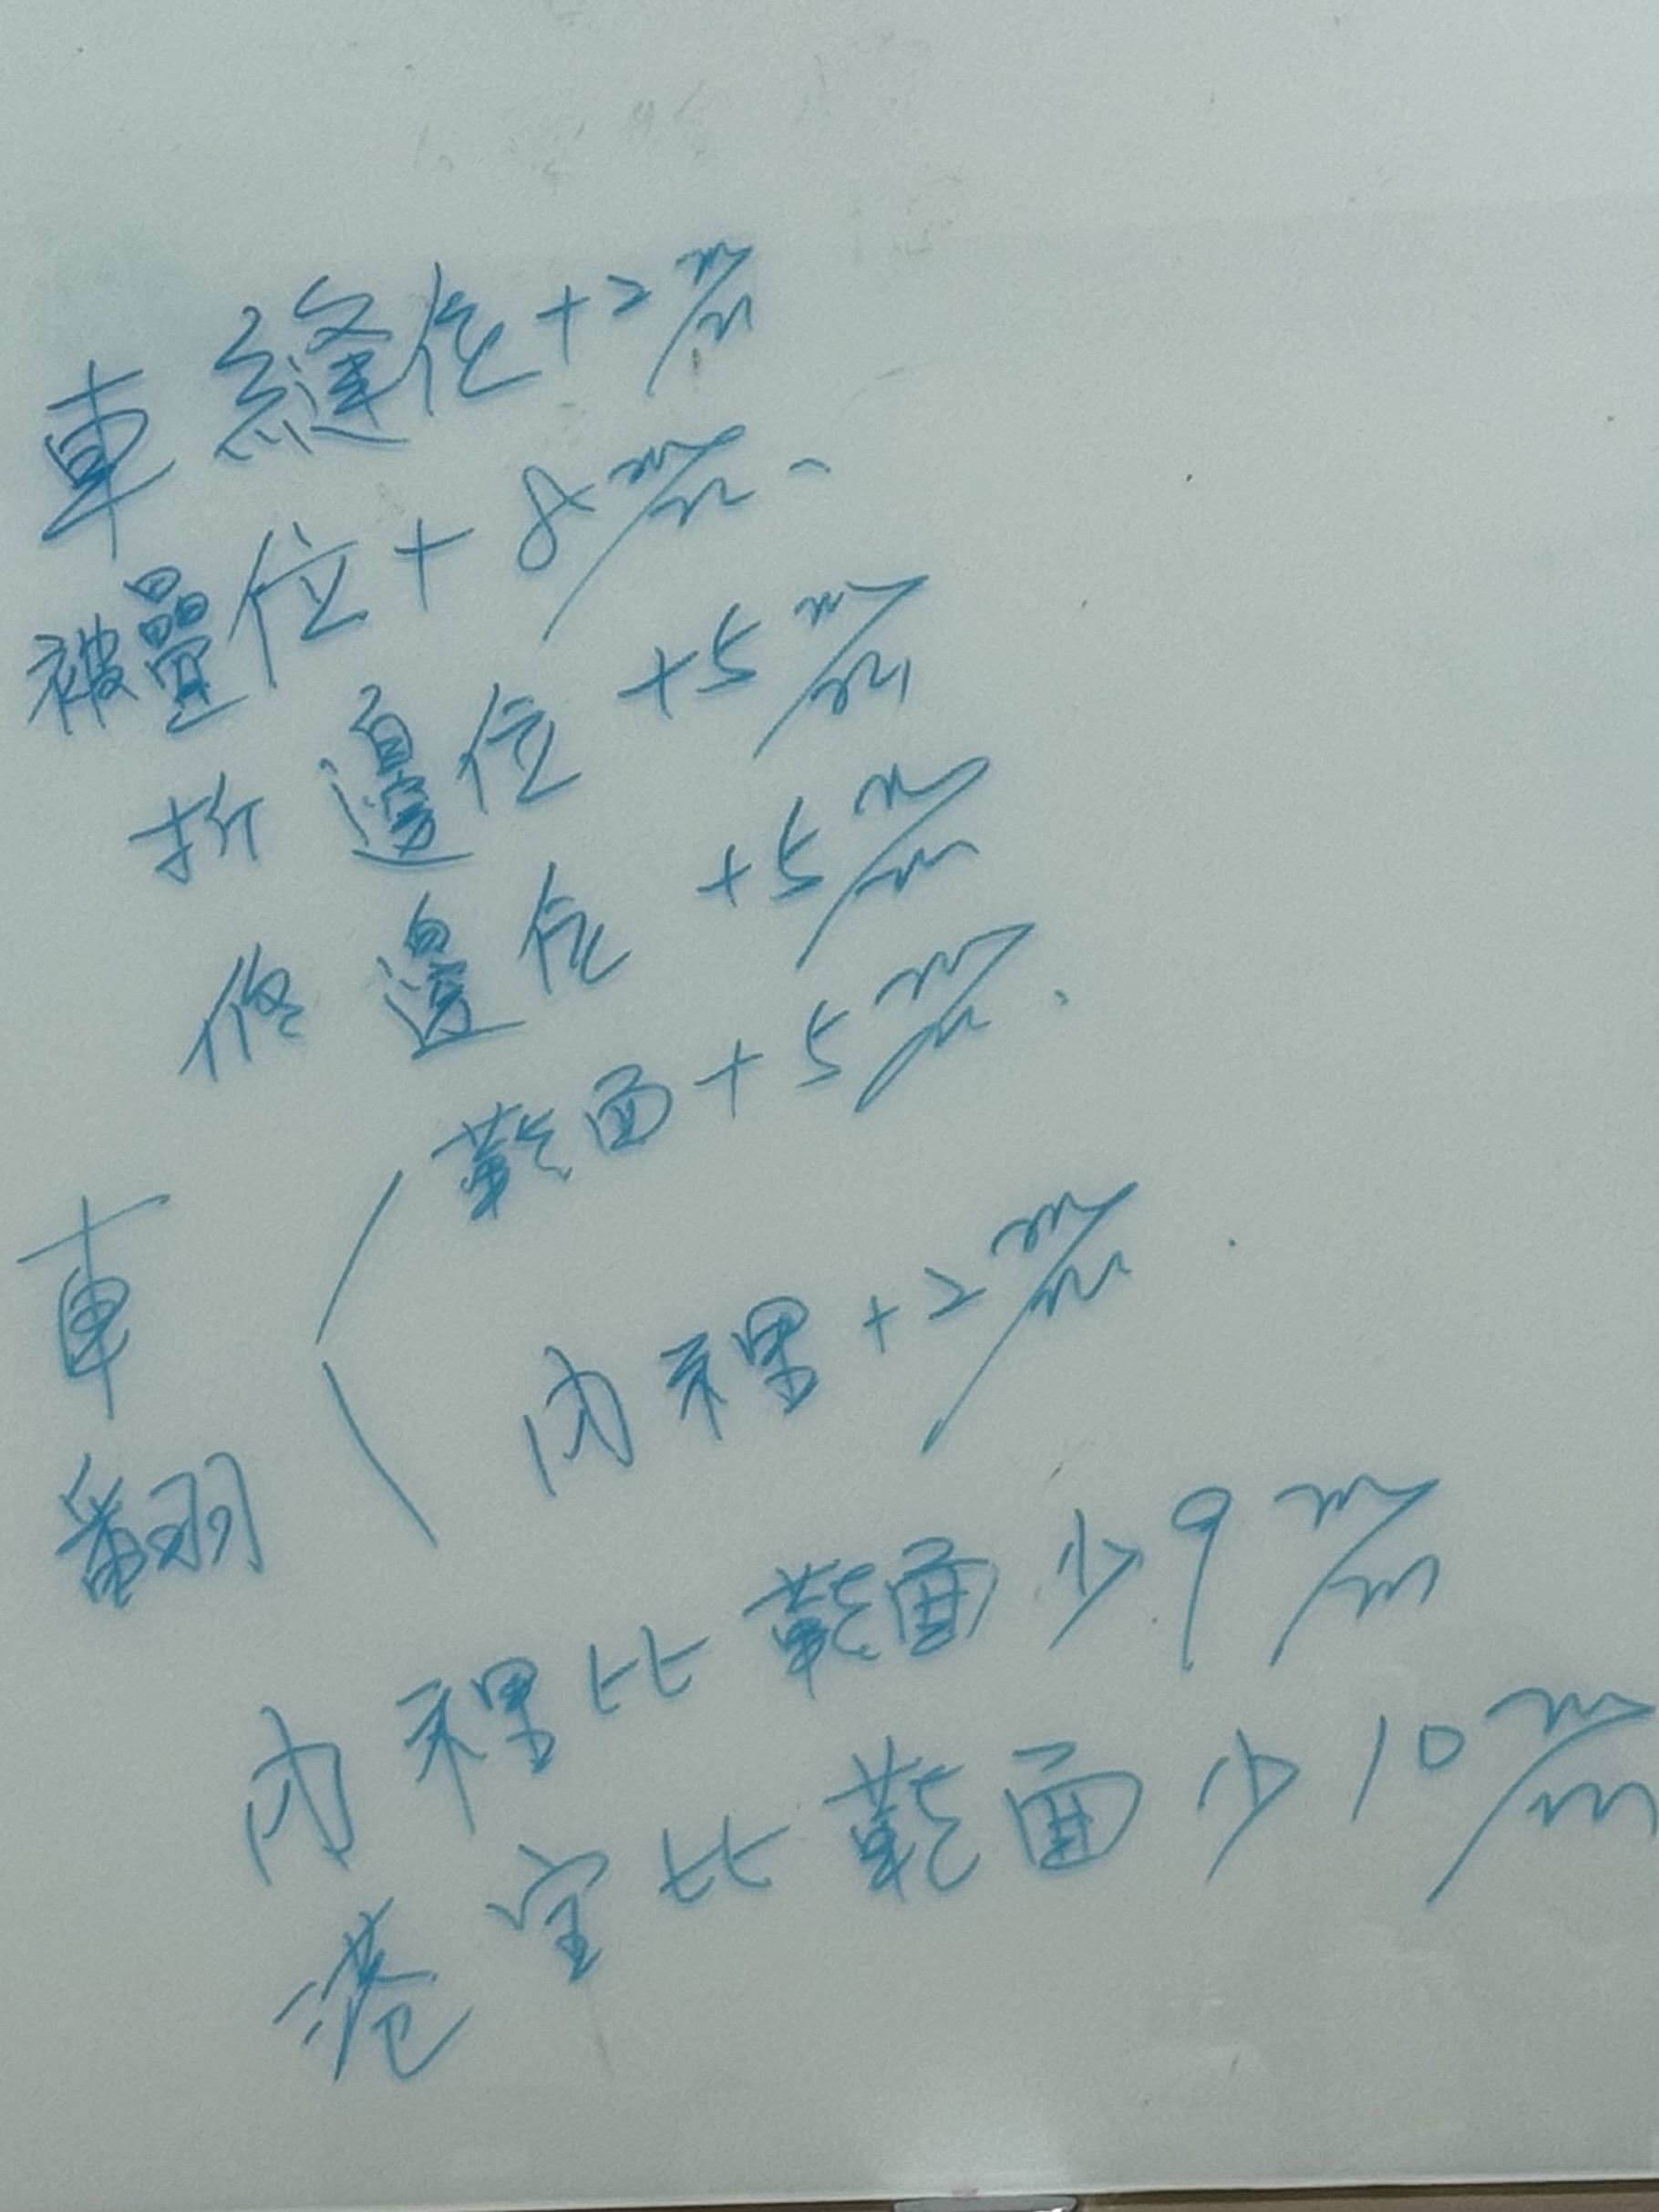 車縫位+2m/m
被疊位+8m/m.
折邊位+5m/m
修邊位+5m/m
車翻
面+5m/m.
內裡+2m/m
內裡比 面少9m/m
港宝比 面少10m/m